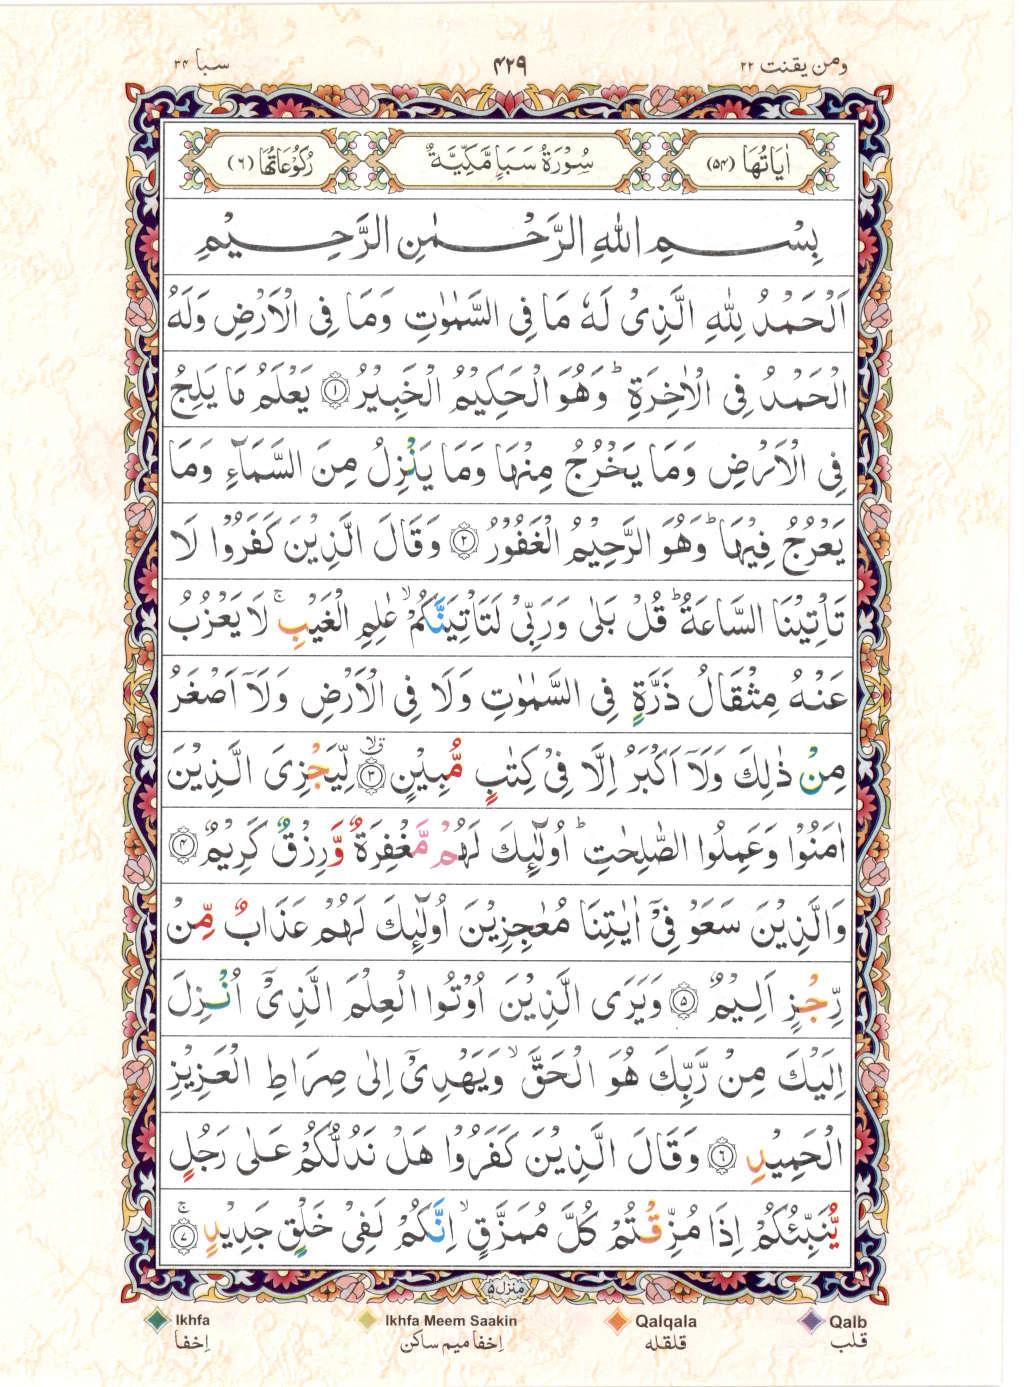 ومن يقنت ۲۲
۴۲۹
سبا ۳۴
اٰيَاتُهَا (۵۴)
سُوْرَةُ سَبَاٍ مَّكِّيَّةٌ
رُكُوْعَاتُهَا (۶)
بِسْمِ اللّٰهِ الرَّحْمٰنِ الرَّحِيْمِ
اَلْحَمْدُ لِلّٰهِ الَّذِىْ لَهٗ مَا فِى السَّمٰوٰتِ وَمَا فِى الْاَرْضِ وَلَهُ
الْحَمْدُ فِى الْاٰخِرَةِ ؕ وَهُوَ الْحَكِيْمُ الْخَبِيْرُ ۱ يَعْلَمُ مَا يَلِجُ
فِى الْاَرْضِ وَمَا يَخْرُجُ مِنْهَا وَمَا يَنْزِلُ مِنَ السَّمَآءِ وَمَا
يَعْرُجُ فِيْهَا ؕ وَهُوَ الرَّحِيْمُ الْغَفُوْرُ ۲ وَقَالَ الَّذِيْنَ كَفَرُوْا لَا
تَاْتِيْنَا السَّاعَةُ ؕ قُلْ بَلٰى وَرَبِّىْ لَتَاْتِيَنَّكُمْ ۙ عٰلِمِ الْغَيْبِ ۚ لَا يَعْزُبُ
عَنْهُ مِثْقَالُ ذَرَّةٍ فِى السَّمٰوٰتِ وَلَا فِى الْاَرْضِ وَلَاۤ اَصْغَرُ
مِنْ ذٰلِكَ وَلَاۤ اَكْبَرُ اِلَّا فِىْ كِتٰبٍ مُّبِيْنٍ ۳ لِّيَجْزِىَ الَّذِيْنَ
اٰمَنُوْا وَعَمِلُوا الصّٰلِحٰتِ ؕ اُولٰٓئِكَ لَهُمْ مَّغْفِرَةٌ وَّرِزْقٌ كَرِيْمٌ ۴
وَالَّذِيْنَ سَعَوْ فِىْۤ اٰيٰتِنَا مُعٰجِزِيْنَ اُولٰٓئِكَ لَهُمْ عَذَابٌ مِّنْ
رِّجْزٍ اَلِيْمٌ ۵ وَيَرَى الَّذِيْنَ اُوْتُوا الْعِلْمَ الَّذِىْۤ اُنْزِلَ
اِلَيْكَ مِنْ رَّبِّكَ هُوَ الْحَقَّ ۙ وَيَهْدِىْۤ اِلٰى صِرَاطِ الْعَزِيْزِ
الْحَمِيْدِ ۶ وَقَالَ الَّذِيْنَ كَفَرُوْا هَلْ نَدُلُّكُمْ عَلٰى رَجُلٍ
يُّنَبِّئُكُمْ اِذَا مُزِّقْتُمْ كُلَّ مُمَزَّقٍ ۙ اِنَّكُمْ لَفِىْ خَلْقٍ جَدِيْدٍ ۚ ۷
منزل ۵
Ikhfa
Ikhfa Meem Saakin
Qalqala
Qalb
اِخفا
اِخفا ميم ساكن
قلقله
قلب